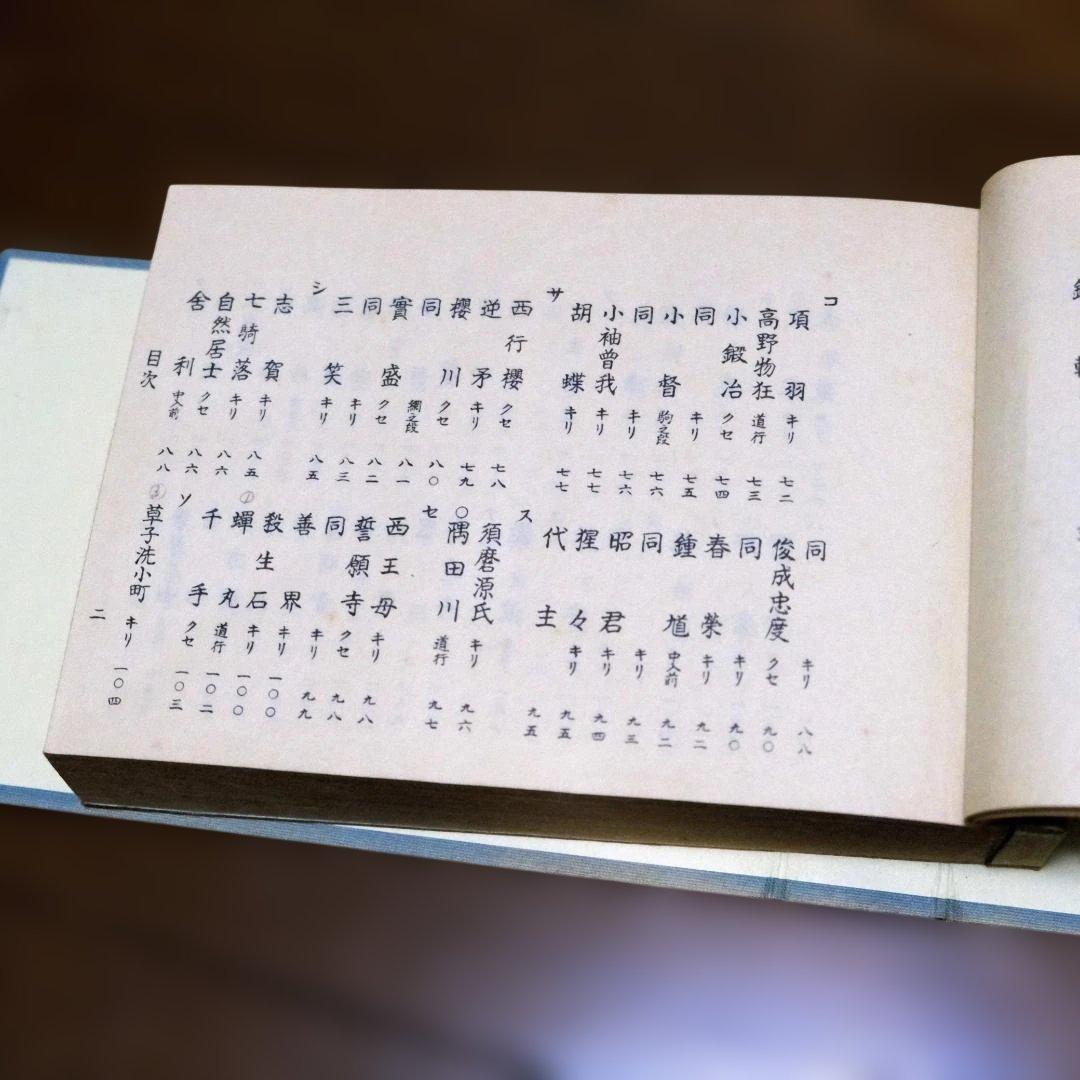 コ
項羽 キリ 七二
高野物狂 道行 七三
小鍛冶 クセ 七四
同 キリ 七五
小督 駒之段 七六
同 キリ 七六
小袖曽我 キリ 七七
胡蝶 キリ 七七
サ
西行櫻 クセ 七八
逆矛 キリ 七九
櫻川 クセ 八〇
同 網之段 八一
實盛 クセ 八二
同 キリ 八三
三笑 キリ 八五
シ
志賀 キリ 八五
七騎落 キリ 八六
自然居士 クセ 八六
舍利 中入前 八八
同 キリ 八八
俊成忠度 クセ 九〇
同 キリ 九〇
春榮 キリ 九二
鍾馗 中入前 九二
同 キリ 九三
昭君 キリ 九四
猩々 キリ 九五
代主 九五
ス
須磨源氏 キリ 九六
○隅田川 道行 九七
セ
西王母 キリ 九八
誓願寺 クセ 九八
同 キリ 九九
善界 キリ 一〇〇
殺生石 キリ 一〇〇
①蟬丸 道行 一〇二
千手 クセ 一〇三
ソ
③草子洗小町 キリ 一〇四
目次 二